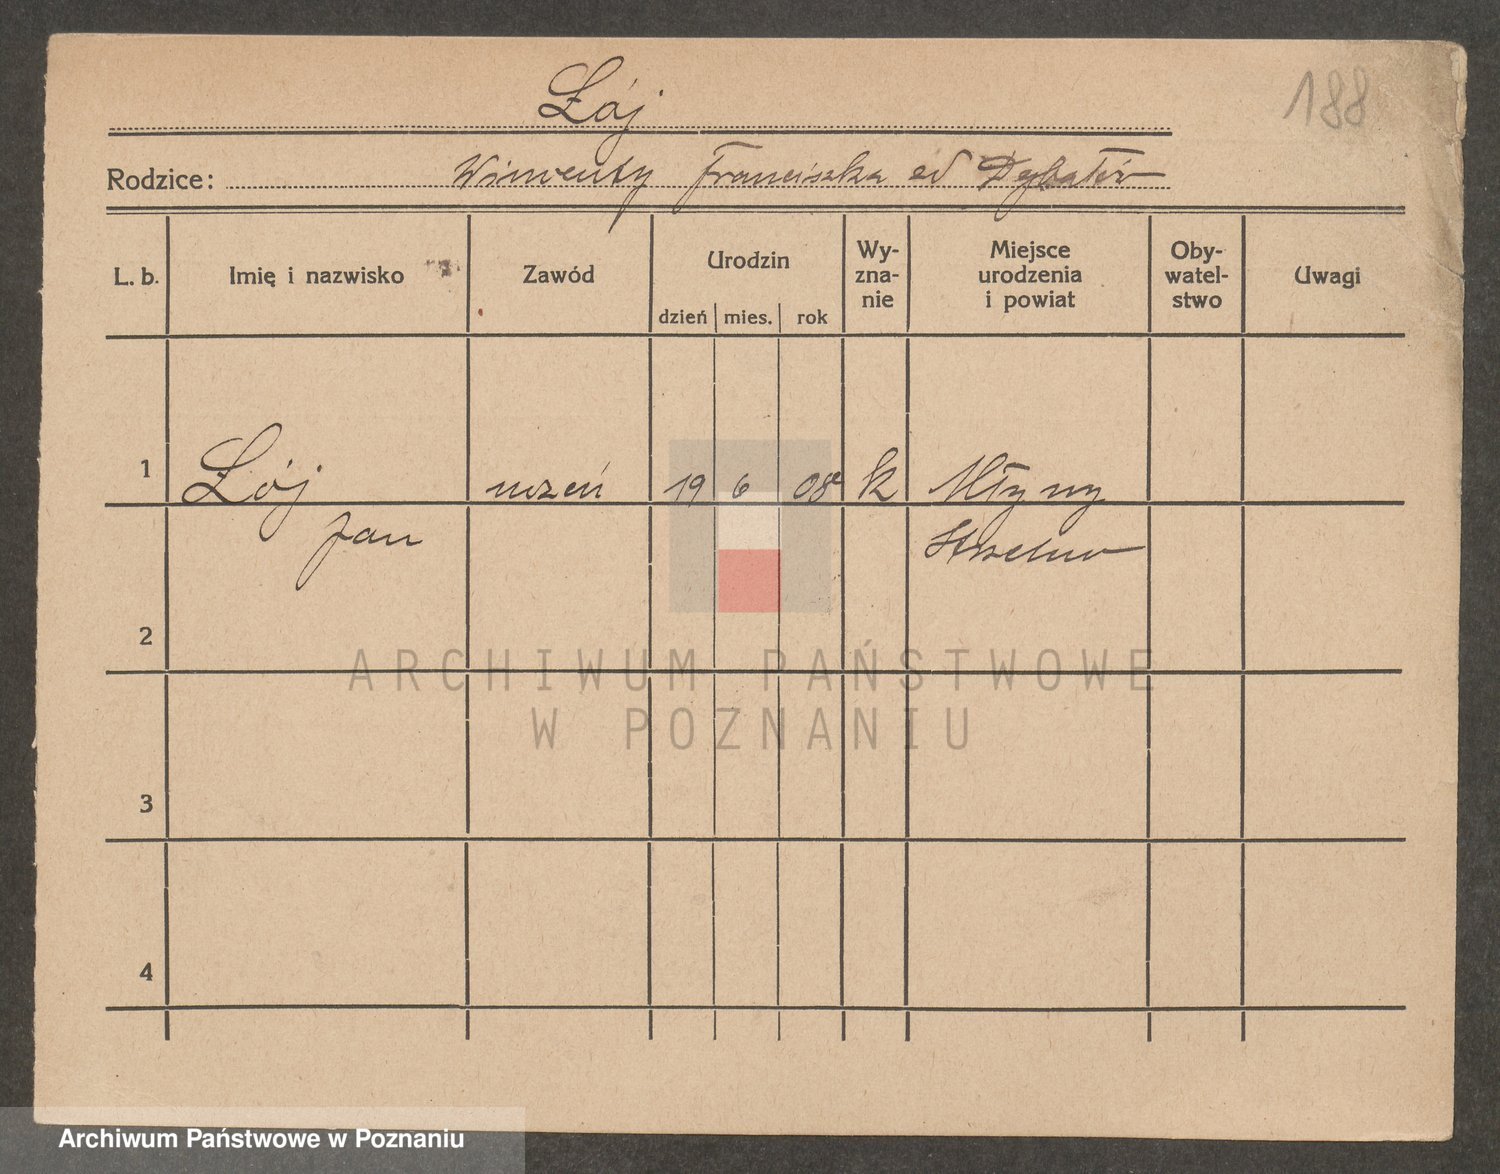 Łój
188
Rodzice: Wincenty Franciszka
L. b. Imię i nazwisko Zawód Urodzin Wy-zna-nie Miejsce urodzenia i powiat Oby-watel-stwo Uwagi
dzień mies. rok
1 Łój uczeń 19 6 08 k Młyny
Jan Strzelno
2
ARCHIWUM PAŃSTWOWE
W POZNANIU
3
4
Archiwum Państwowe w Poznaniu